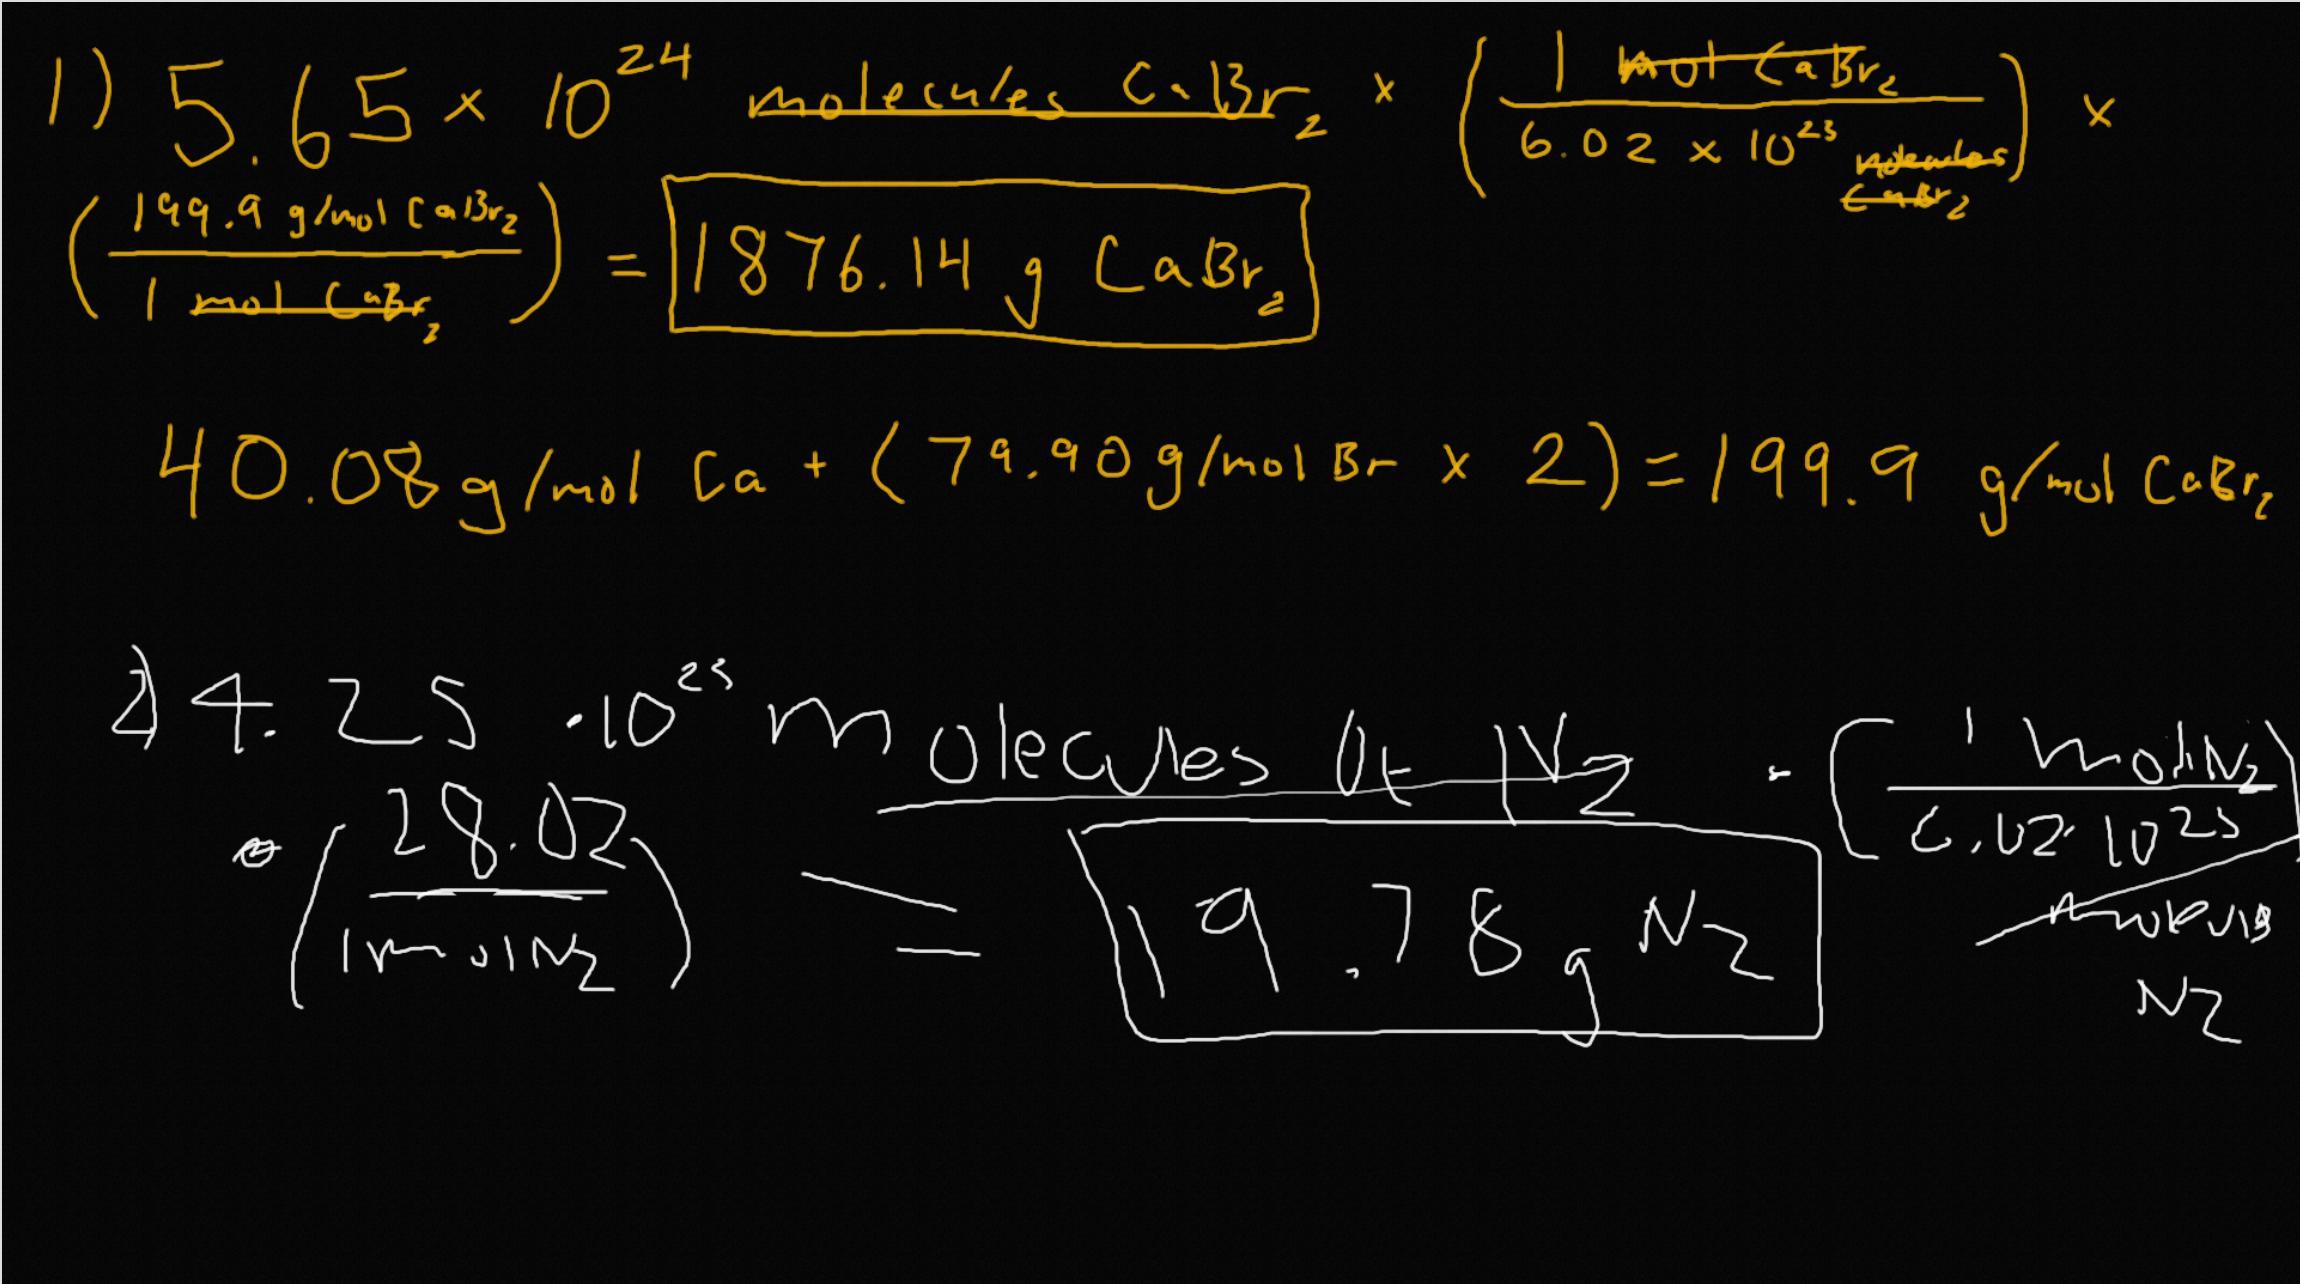 1) 5.65 × 10^24 molecules CaBr₂ × (1 mol CaBr₂ / 6.02 × 10^23 molecules CaBr₂) ×
(199.9 g/mol CaBr₂ / 1 mol CaBr₂) = 1876.14 g CaBr₂
40.08 g/mol Ca + (79.90 g/mol Br × 2) = 199.9 g/mol CaBr₂
2) 4.25 · 10^23 molecules of N₂ · (1 mol N₂ / 6.02 · 10^23 N₂)
(28.02 / 1 mol N₂) = 19.78 g N₂